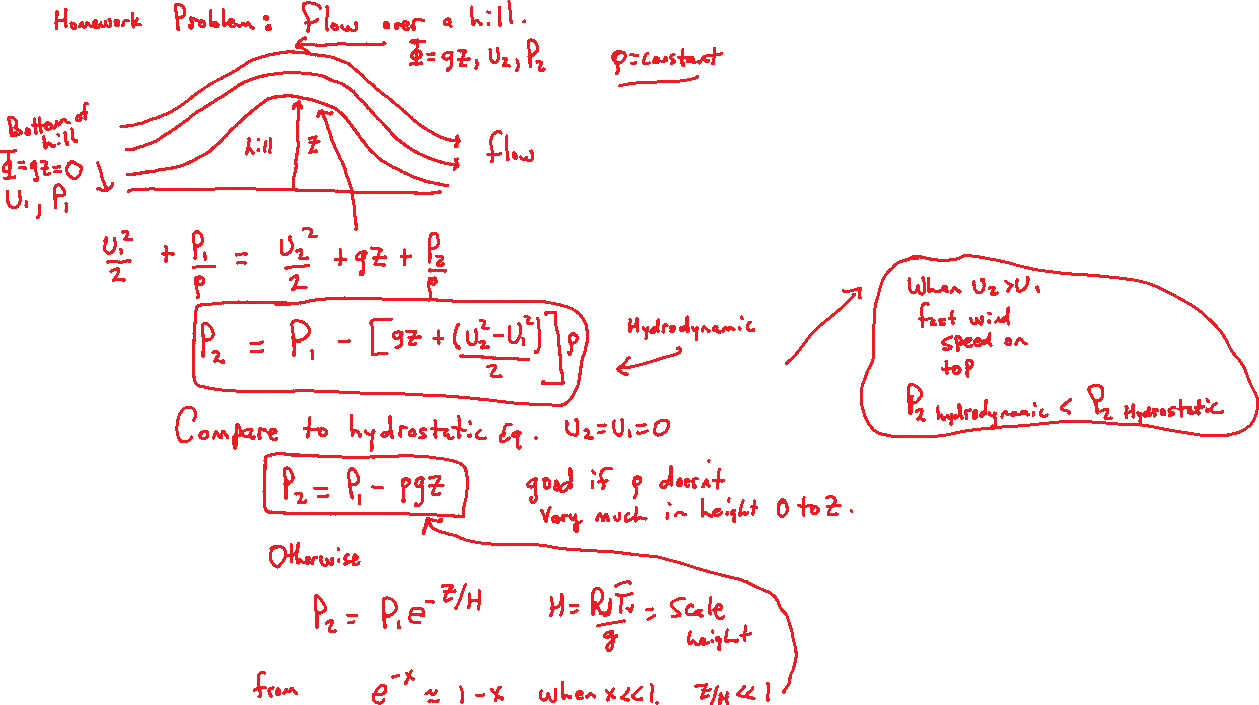 Homework Problem: Flow over a hill.
Φ=gz, U₂, P₂
ρ=constant
Bottom of
hill
Φ=gz=0
U₁, P₁
hill
z
flow
U₁²/2 + P₁/ρ = U₂²/2 + gz + P₂/ρ
P₂ = P₁ - [gz + (U₂²-U₁²)/2]ρ
Hydrodynamic
When U₂>U₁
fast wind
speed on
top
P₂ hydrodynamic < P₂ Hydrostatic
Compare to hydrostatic Eq. U₂=U₁=0
P₂ = P₁ - ρgz
good if ρ doesn't
Vary much in height 0 to z.
Otherwise
P₂ = P₁e^(-z/H)
H = R_d T̄_v/g = Scale
height
from e^(-x) ≈ 1-x when x<<1. z/H << 1